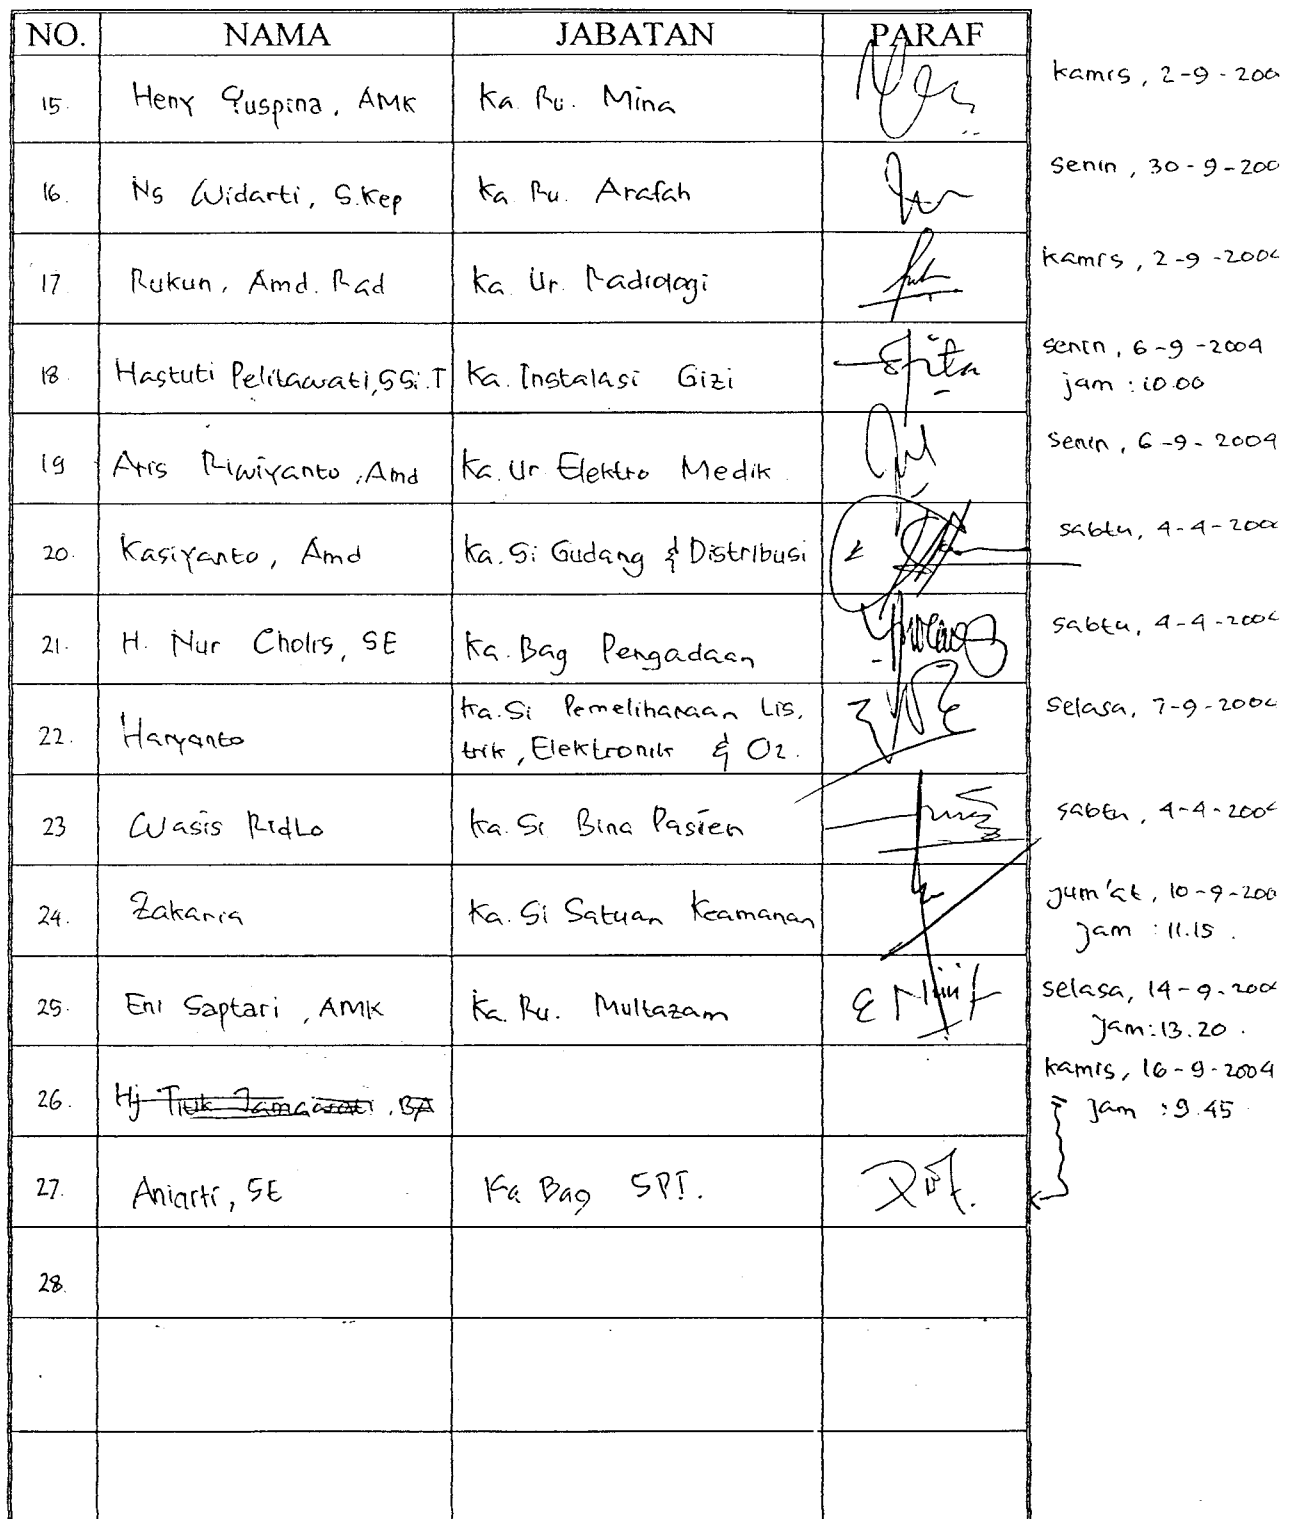 NO. NAMA JABATAN PARAF
15. Heny Yuspina, AMK Ka. Ru. Mina kamis, 2-9-200
16. Ns Widarti, S.Kep Ka. Ru. Arafah senin, 30-9-200
17 Rukun, Amd. Rad Ka. Ur. Radiologi kamis, 2-9-200
18. Hastuti Pelitawati, SSi.T Ka. Instalasi Gizi senin, 6-9-2004
jam : 10.00
19 Aris Riwiyanto, Amd Ka. Ur Elektro Medik senin, 6-9-2004
20. Kasiyanto, Amd Ka. Si Gudang & Distribusi sabtu, 4-4-200
21. H. Nur Cholis, SE Ka. Bag Pengadaan sabtu, 4-4-200
22. Haryanto Ka. Si Pemeliharaan Lis. selasa, 7-9-200
trik, Elektronik & O2.
23 Wasis Ridlo Ka. Si Bina Pasien sabtu, 4-4-200
24. Zakaria Ka. Si Satuan Keamanan jum'at, 10-9-200
jam : 11.15.
25. Eni Saptari, AMK Ka. Ru. Multazam selasa, 14-9-200
Jam: 13.20.
26. Hj BA kamis, 16-9-2004
Jam : 9.45
27. Aniarti, SE Ka Bag SPI.
28.